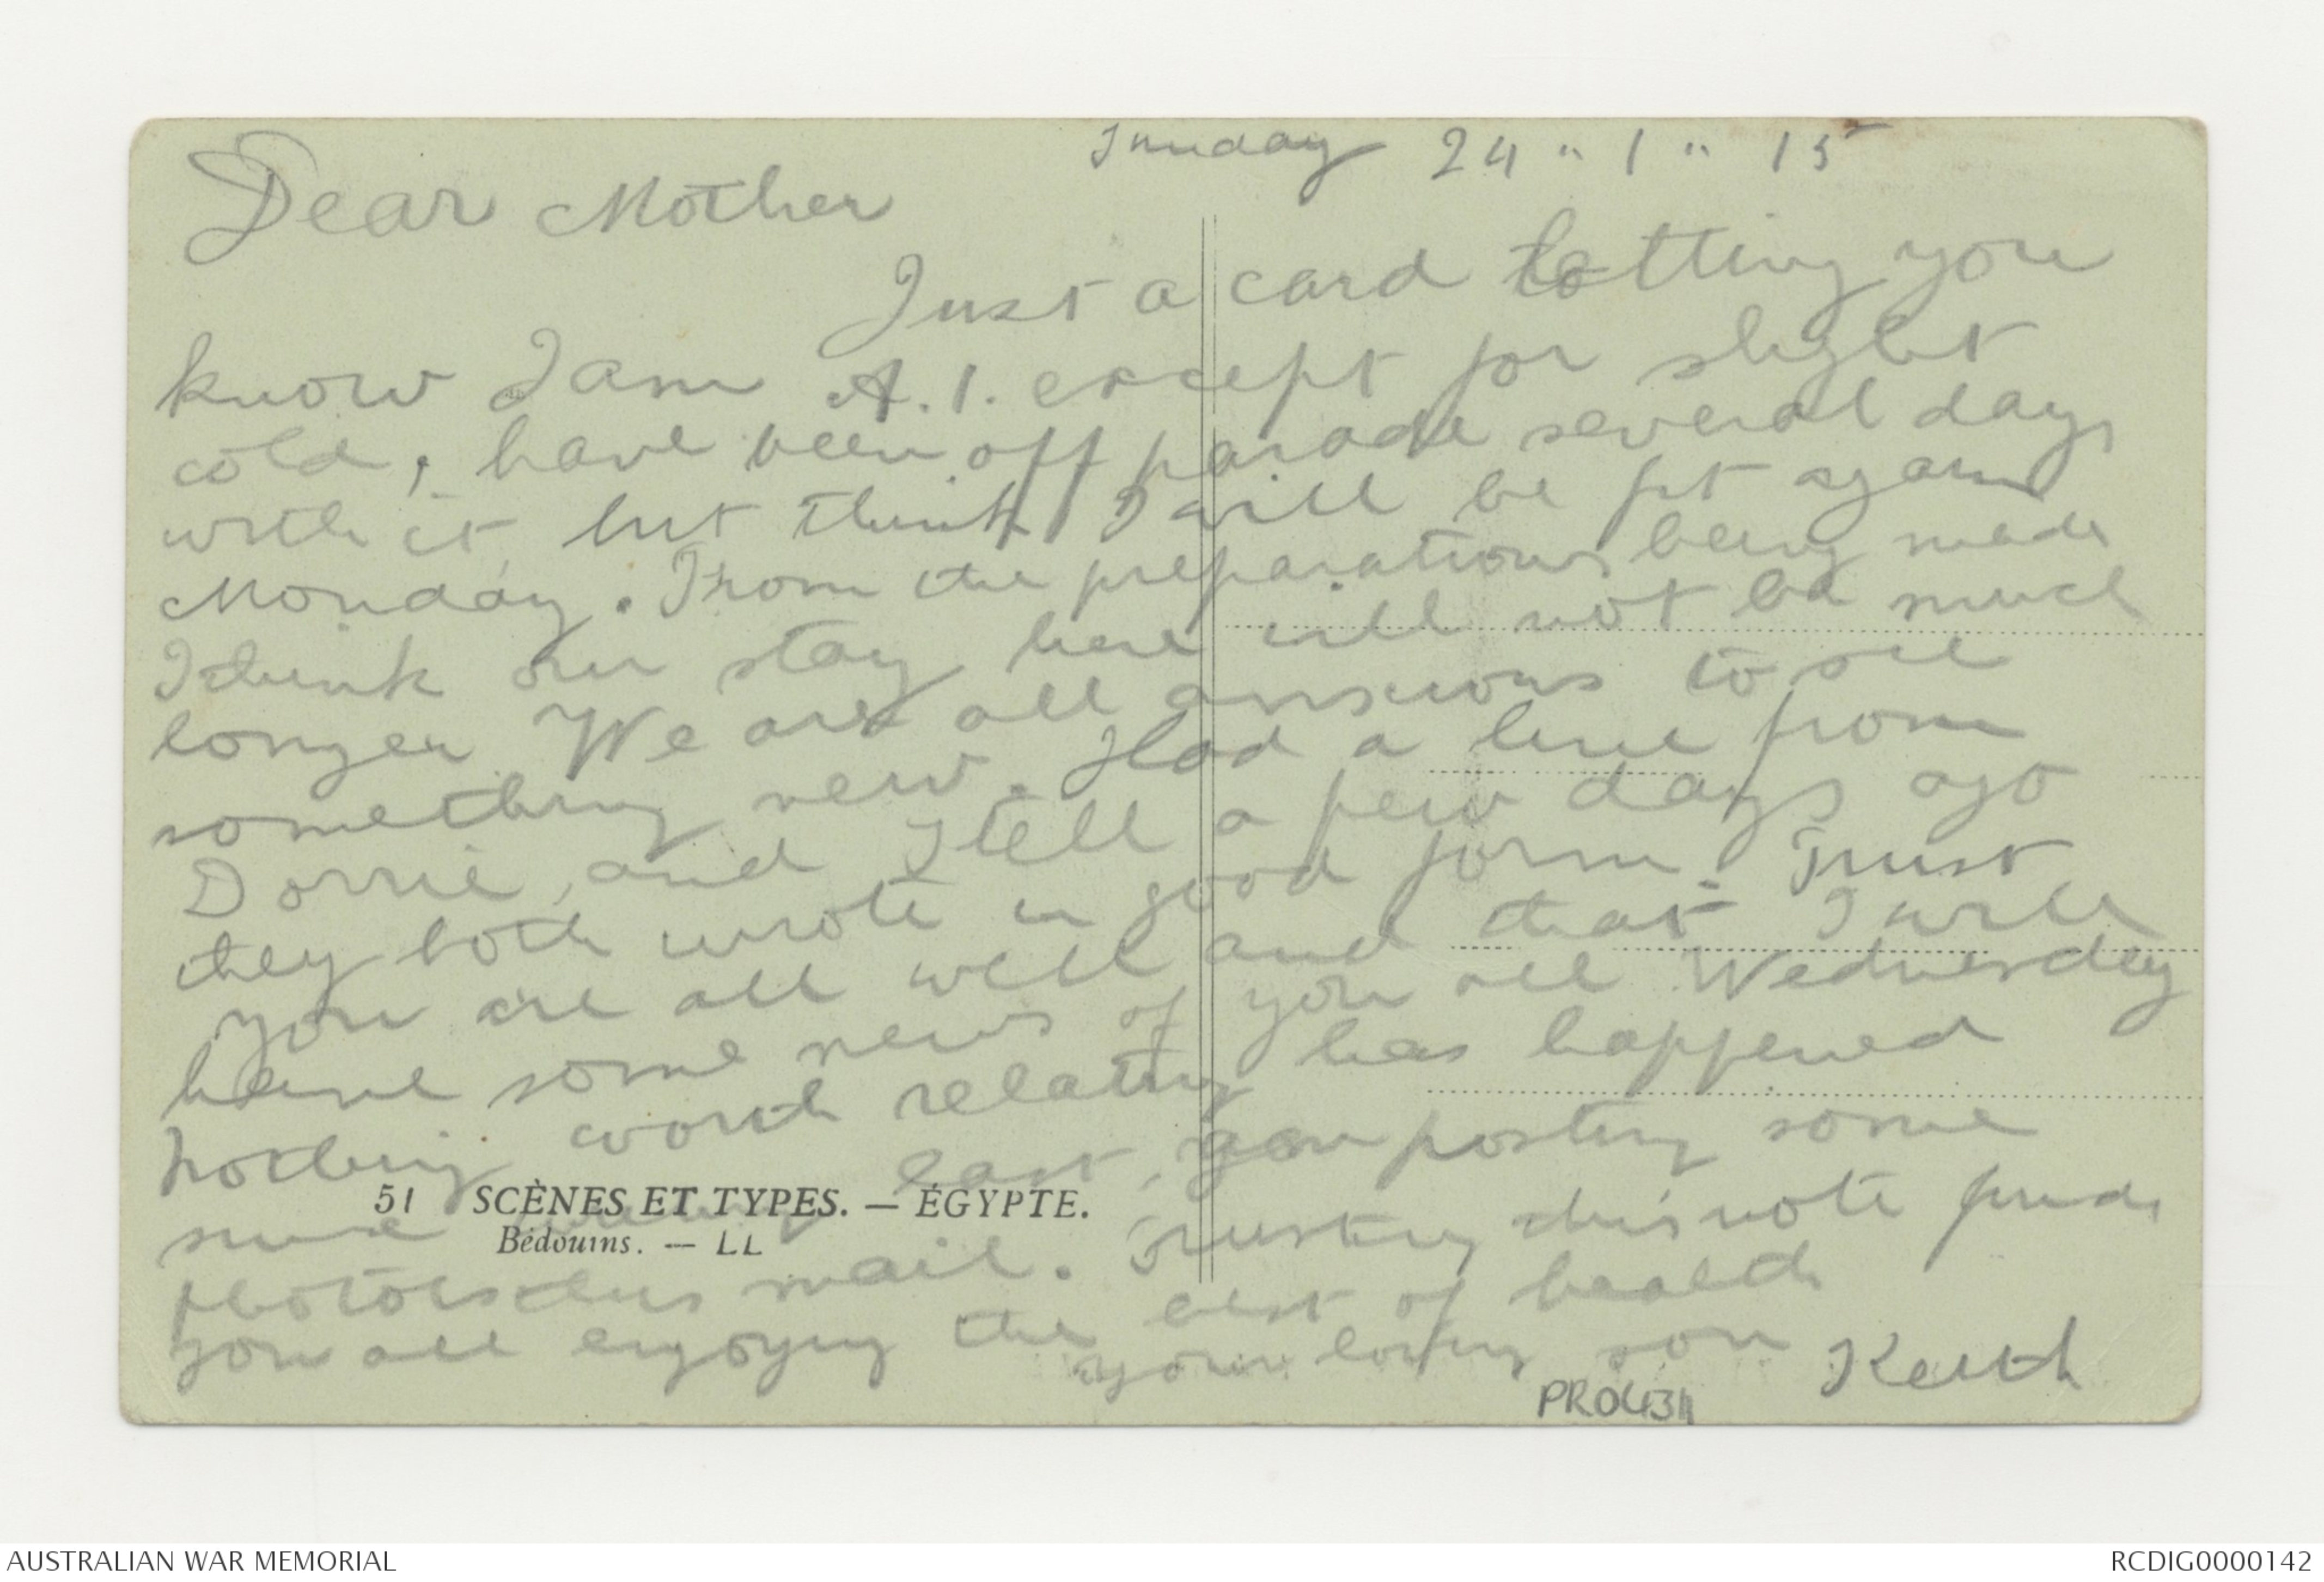 Sunday 24 " 1 " 15
Dear Mother
Just a card letting you
know I am A.1. except for slight
cold, have been off parade several days
with it, but think I will be fit again
Monday. From the preparations being made
I think our stay here will not be much
longer We are all anxious to see
something new. Had a line from
Dorrie, and Nell a few days ago
they both wrote in good form. Trust
you are all well and that I will
have some news of you all Wednesday
Nothing worth relating has happened
since last, am posting some
51 SCÈNES ET TYPES. — ÉGYPTE.
Bédouins. — LL
photos this mail. Trusting this note finds
you all enjoying the best of health
your loving son Keith
PRO4311
AUSTRALIAN WAR MEMORIAL
RCDIG0000142